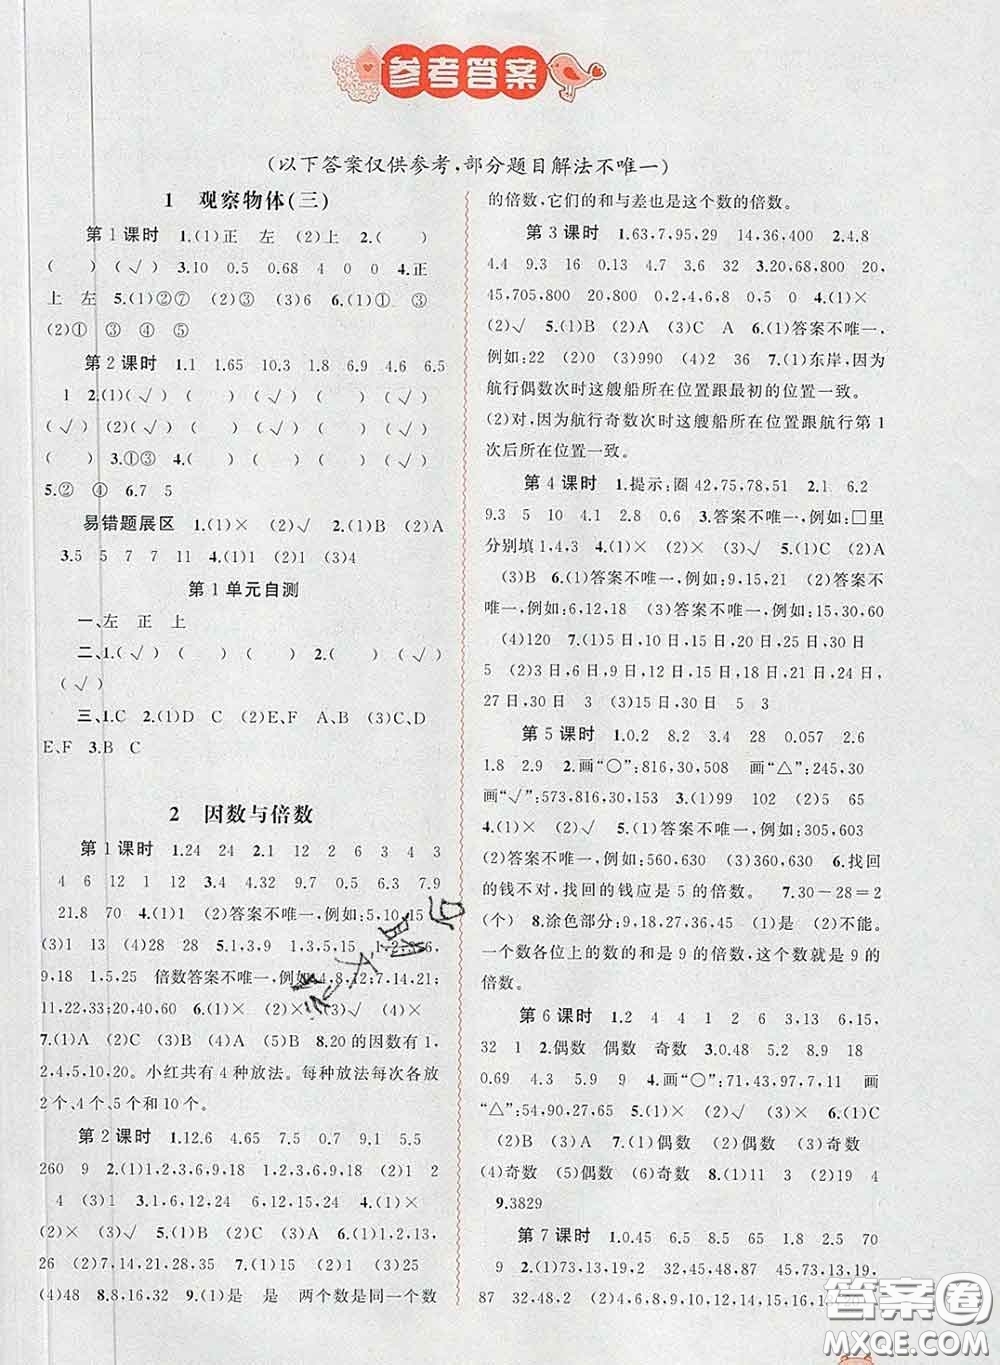 参考答案
(以下答案仅供参考,部分题目解法不唯一)
1 观察物体(三)
第1课时 1.(1)正 左 (2)上 2.( )
( ) (√) 3.10 0.5 0.68 4 0 0 4.正
上 左 5.(1)②⑦ (2)③ (3)6 6.(1)① ③
(2)① ③ ④ ⑤
第2课时 1.1 1.65 10.3 1.58 4.6 6.5
1 2.(1)(√) ( ) (√) ( ) ( )
(√) (2)( ) ( ) (√) ( )
(√) 3.①③ 4.( ) (√) ( ) ( )
5.② ④ 6.7 5
易错题展区 1.(1)× (2)√ 2.(1)B (2)A
3.5 5 7 7 11 4.(1)1 (2)1 (3)4
第1单元自测
一、左 正 上
二、1.(√) ( ) ( ) 2.( ) (√)
(√)
三、1.C 2.(1)D C (2)E,F A (3)C,D
E,F 3.B C
2 因数与倍数
第1课时 1.24 24 2.1 12 2 6 3 4 3
4 6 12 1 12 3.4 4.32 9.7 0.5 6.3 7.9
21.8 70 4.(1)1 (2)答案不唯一,例如:5,10,15
(3)1 13 (4)28 28 5.1,3,9 1,3,5,15 1,2,3,6,
9,18 1,5,25 倍数答案不唯一,例如:4,8,12;7,14,21;
11,22,33;20,40,60 6.(1)× (2)× (3)√ (4)×
7.(1)A (2)C (3)B (4)A (5)C 8.20的因数有1,
2,4,5,10,20。小红共有4种放法。每种放法每次各放
2个、4个、5个和10个。
第2课时 1.12.6 4.65 7.5 0.7 9.1 5.5
260 9 2.(1)1,2,3,6,9,18 1,2,3,6,9,18 (2)1 2
4 (3)1 3.1,6,12,24 6,12,18,24 4.(1)×
(2)× (3)√ 5.(1)B (2)C (3)A 6.(1)×(2)1,2,13,
26 (2)7,14,21,28,35 7.(1)6 (2)1 (3)25
(4)48 8.8,16,32 9.(1)是 是 两个数是同一个数
的倍数,它们的和与差也是这个数的倍数。
第3课时 1.63,7,95,29 14,36,400 2.4.8
4.4 9.3 16 0.13 4.7 3.6 32 3.20,68,800 20,
45,705,800 20,800 0,2,4,6,8 0,5 0 4.(1)×
(2)√ 5.(1)B (2)A (3)C A 6.(1)答案不唯一,
例如:22 (2)0 (3)990 (4)2 36 7.(1)东岸,因为
航行偶数次时这艘船所在位置跟最初的位置一致。
(2)对,因为航行奇数次时这艘船所在位置跟航行第1
次后所在位置一致。
第4课时 1.提示:圈42,75,78,51 2.1 6.2
9.3 5 10 4.1 2.8 0.6 3.答案不唯一,例如:□里
分别填1,4,3 4.(1)√ (2)× (3)√ 5.(1)C (2)A
(3)B 6.(1)答案不唯一,例如:9,15,21 (2)答案不
唯一,例如:6,12,18 (3)答案不唯一,例如:15,30,60
(4)120 7.(1)5日,10日,15日,20日,25日,30日
5 (2)3日,6日,9日,12日,15日,18日,21日,24日,
27日,30日 3 (3)15日,30日 5 3
第5课时 1.0.2 8.2 3.4 28 0.057 2.6
1.8 2.9 2.画“○”:816,30,508 画“△”:245,30
画“√”:573,816,30,153 3.(1)99 102 (2)5 65
4.(1)√ (2)× 5.(1)答案不唯一,例如:305,603
(2)答案不唯一,例如:560,630 (2)答案不唯一 6.找回
的钱不对,找回的钱应是5的倍数。 7.30-28=2
(个) 8.涂色部分:9,18,27,36,45 (1)是 (2)不能。
一个数各位上的数的和是9的倍数,这个数就是9的
倍数。
第6课时 1.2 4 4 1 2 6 3,13 6,15,
32 1 2.偶数 偶数 奇数 3.0.48 5.2 8.9 18
0.69 4.3 9 0.5 4.画“○”:71,43,97,11 画
“△”:54,90,27,65 5.(1)× (2)√ (3)× 6.(1)C
(2)B (3)A (4)C 7.(1)偶数 (2)奇数 (3)偶数
(4)奇数 (5)偶数 (6)奇数 8.(1)11 (2)19 4
9.3829
第7课时 1.0.45 6.5 8.5 15 2.8 70
9 2.(1)73,13,19,2 87,32,48,12 45,73,13,19,
87 32,48,2 (2)4,6,8,9,10,12,14,15,16,
答案圈
MXQE.COM